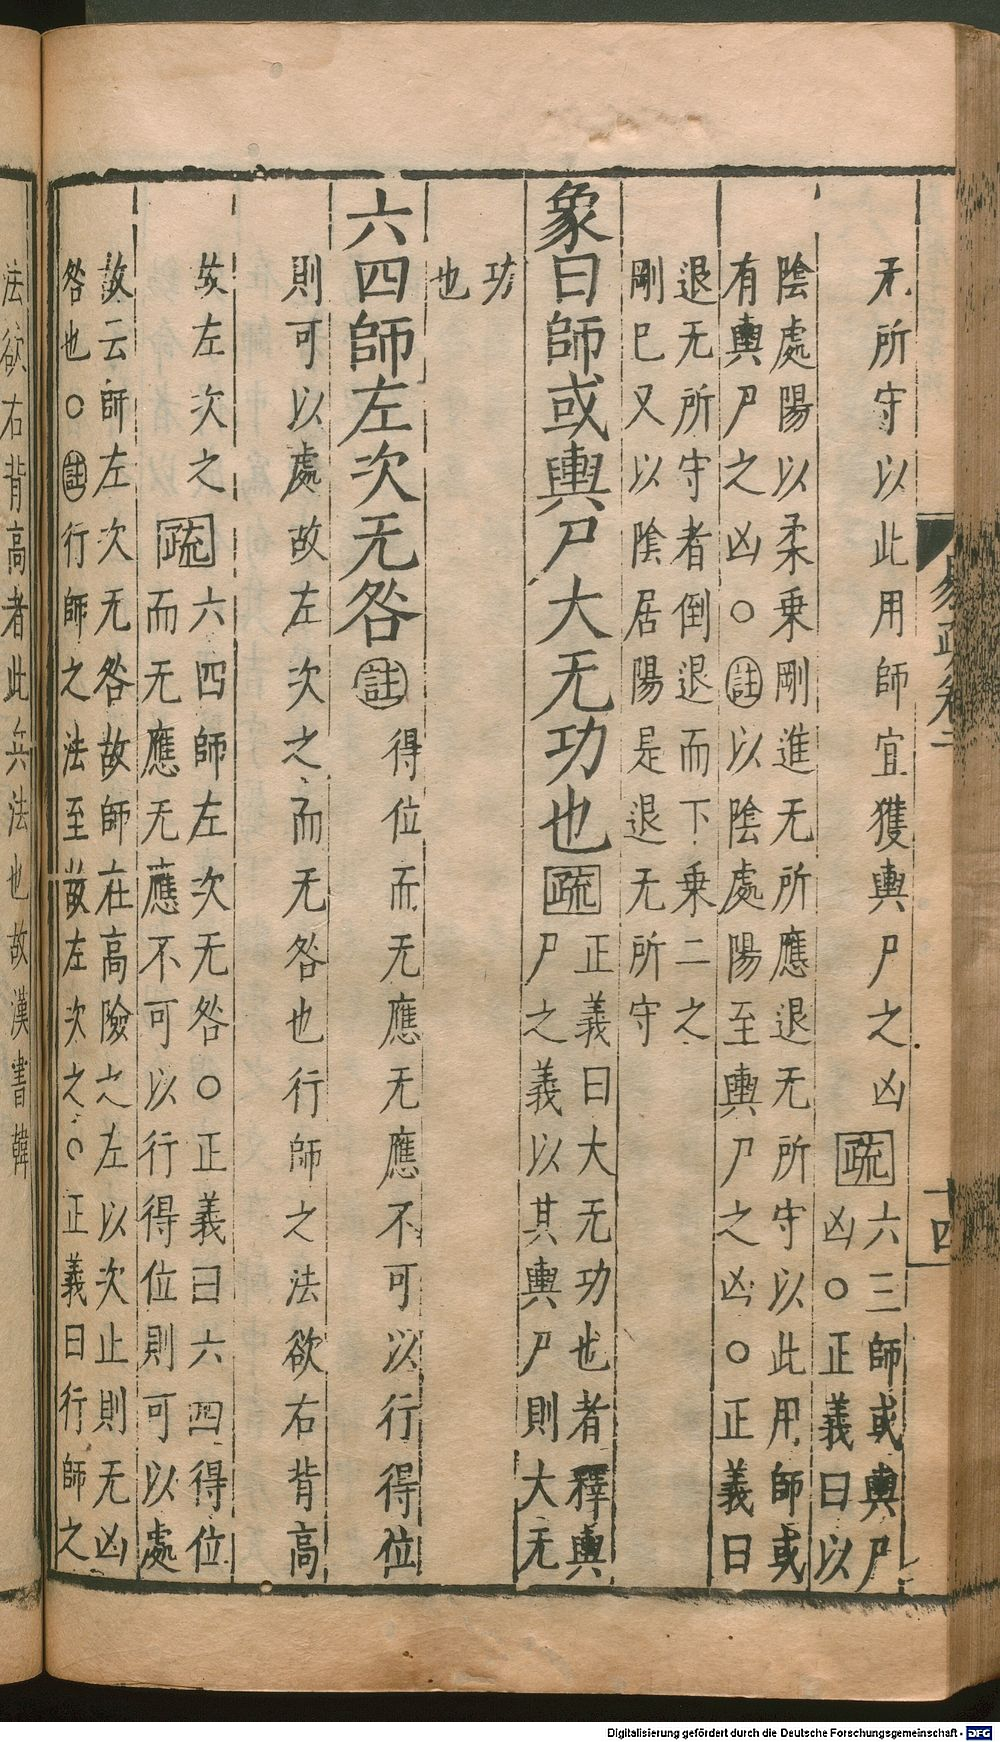 无所守以此用師宜獲輿尸之凶疏六三師或輿尸
凶○正義曰以
陰處陽以柔乗剛進无所應退无所守以此用師或
有輿尸之凶○註以陰處陽至輿尸之凶○正義曰
退无所守者倒退而下乗二之
剛巳又以陰居陽是退无所守
象曰師或輿尸大无功也疏正義曰大无功也者釋輿
尸之義以其輿尸則大无
功
也
六四師左次无咎註得位而无應无應不可以行得位
則可以處故左次之而无咎也行師之法欲右背高
故左次之疏六四師左次无咎○正義曰六四得位
而无應无應不可以行得位則可以處
故云師左次无咎故師在高險之左以次止則无凶
咎也○註行師之法至故左次之○正義曰行師之
法欲右背高者此兵法也故漢書韓
易疏卷二
十四
Digitalisierung gefördert durch die Deutsche Forschungsgemeinschaft - DFG